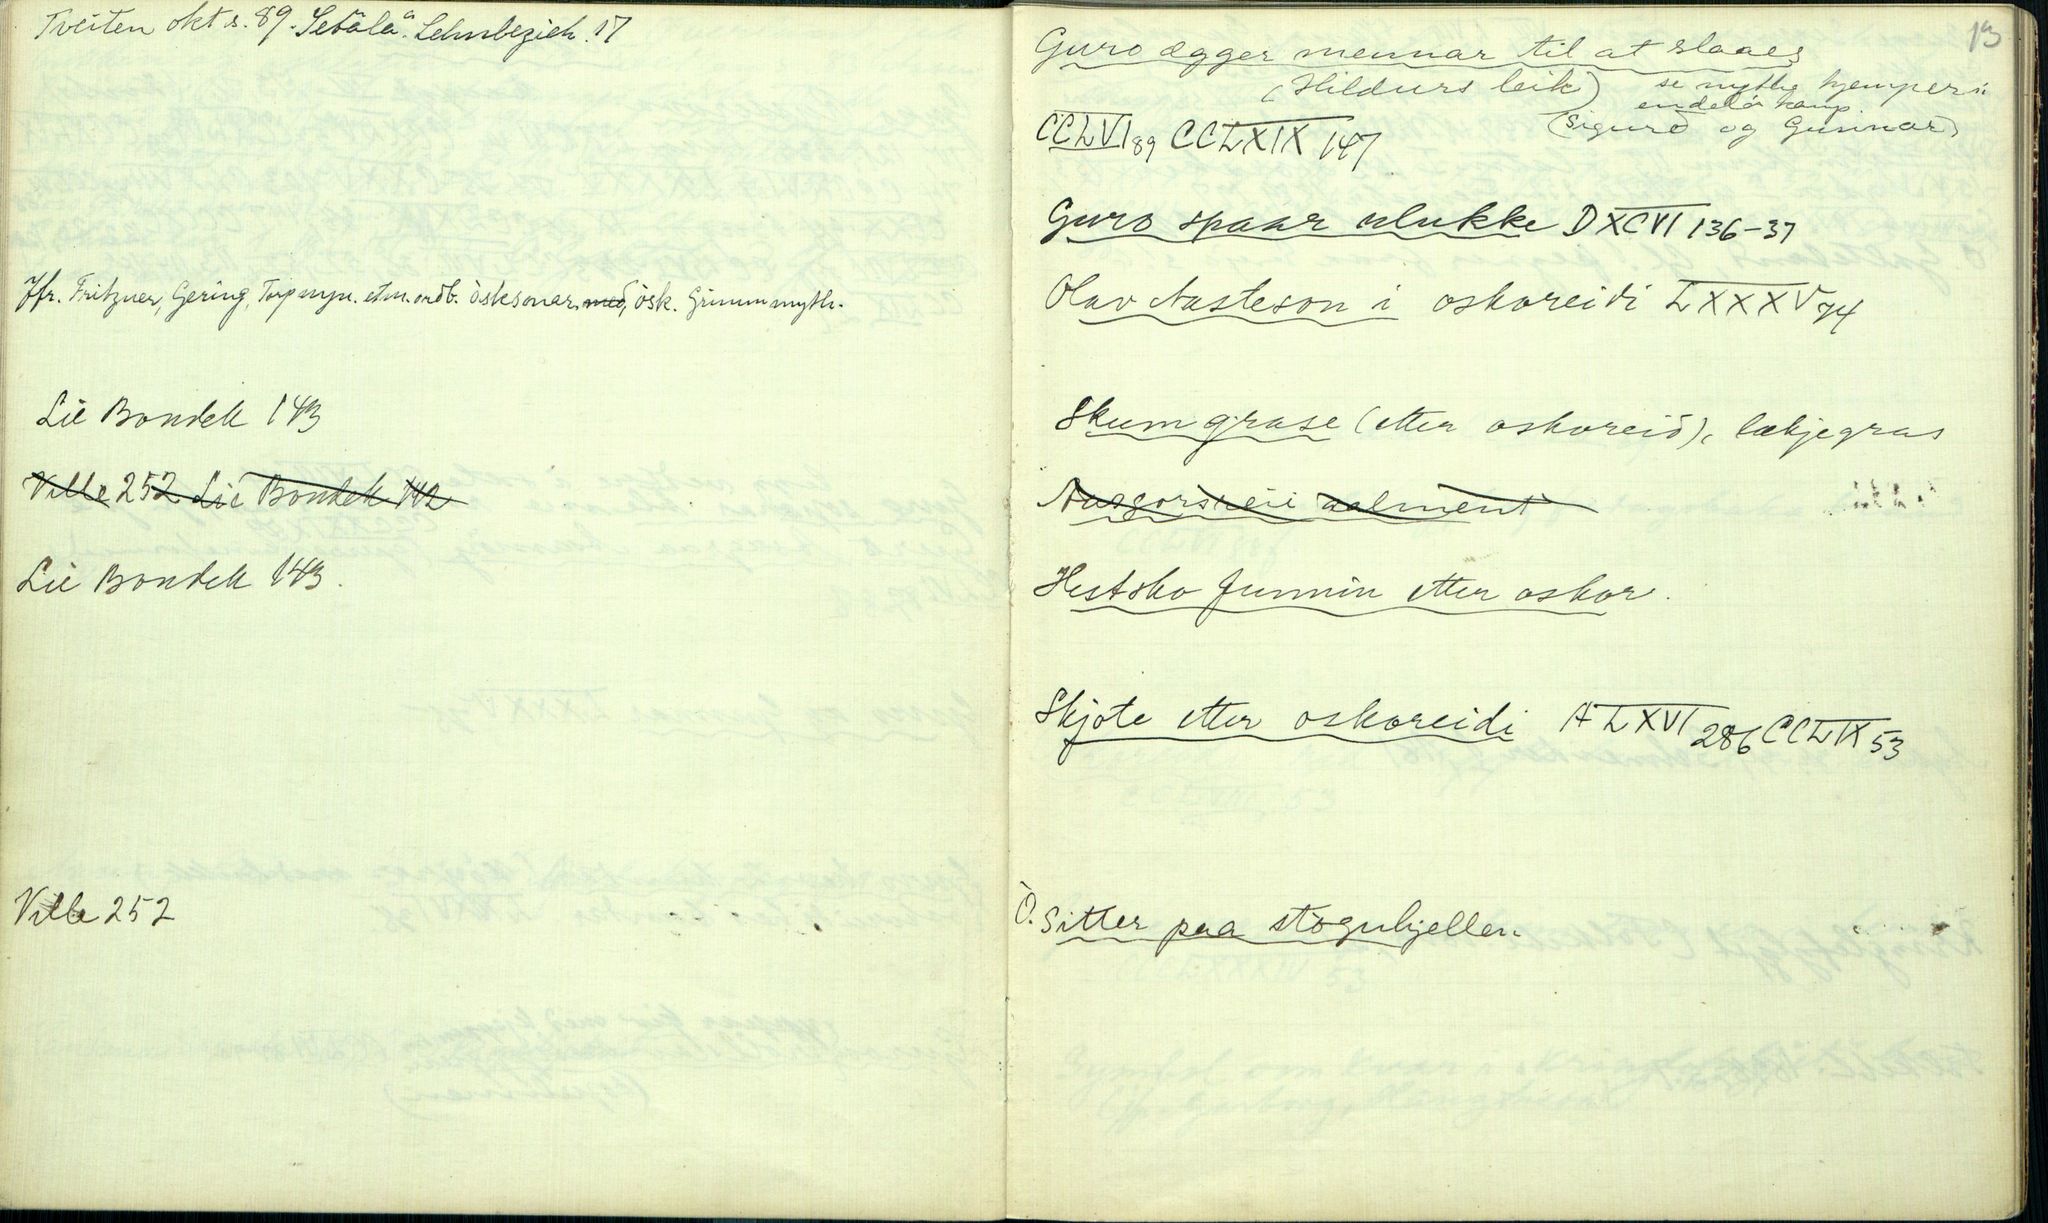 Tveiten okt s. 89. Setälä. Lehnbezieh. 17
Jfr. Fritzner, Gering, Torp nyn. etm. ordb. òsksonar med, òsk. Grimm myth.
Lie Bondek 143
Ville 252 Lie Bondek 142
Lie Bondek 143.
Ville 252
13
Guro ægger mennar til at slaaes
(Hildurs leik) se mytho kjemper i
endelos kamp.
(Sigurd og Gunnar)
CCLVI 89 CCLXIX 147
Guro spaar ulukke DXCVI 136-37
Olav Aasteson i oskoreidi LXXXV 74
Skumgrase (etter oskoreid), lækjegras
Aasgorsreii aalment
Hestsko funnin etter oskor.
Skjote etter oskoreidi A LXVI 286 CCLIX 53
O. Sitter paa stoguhjellen.